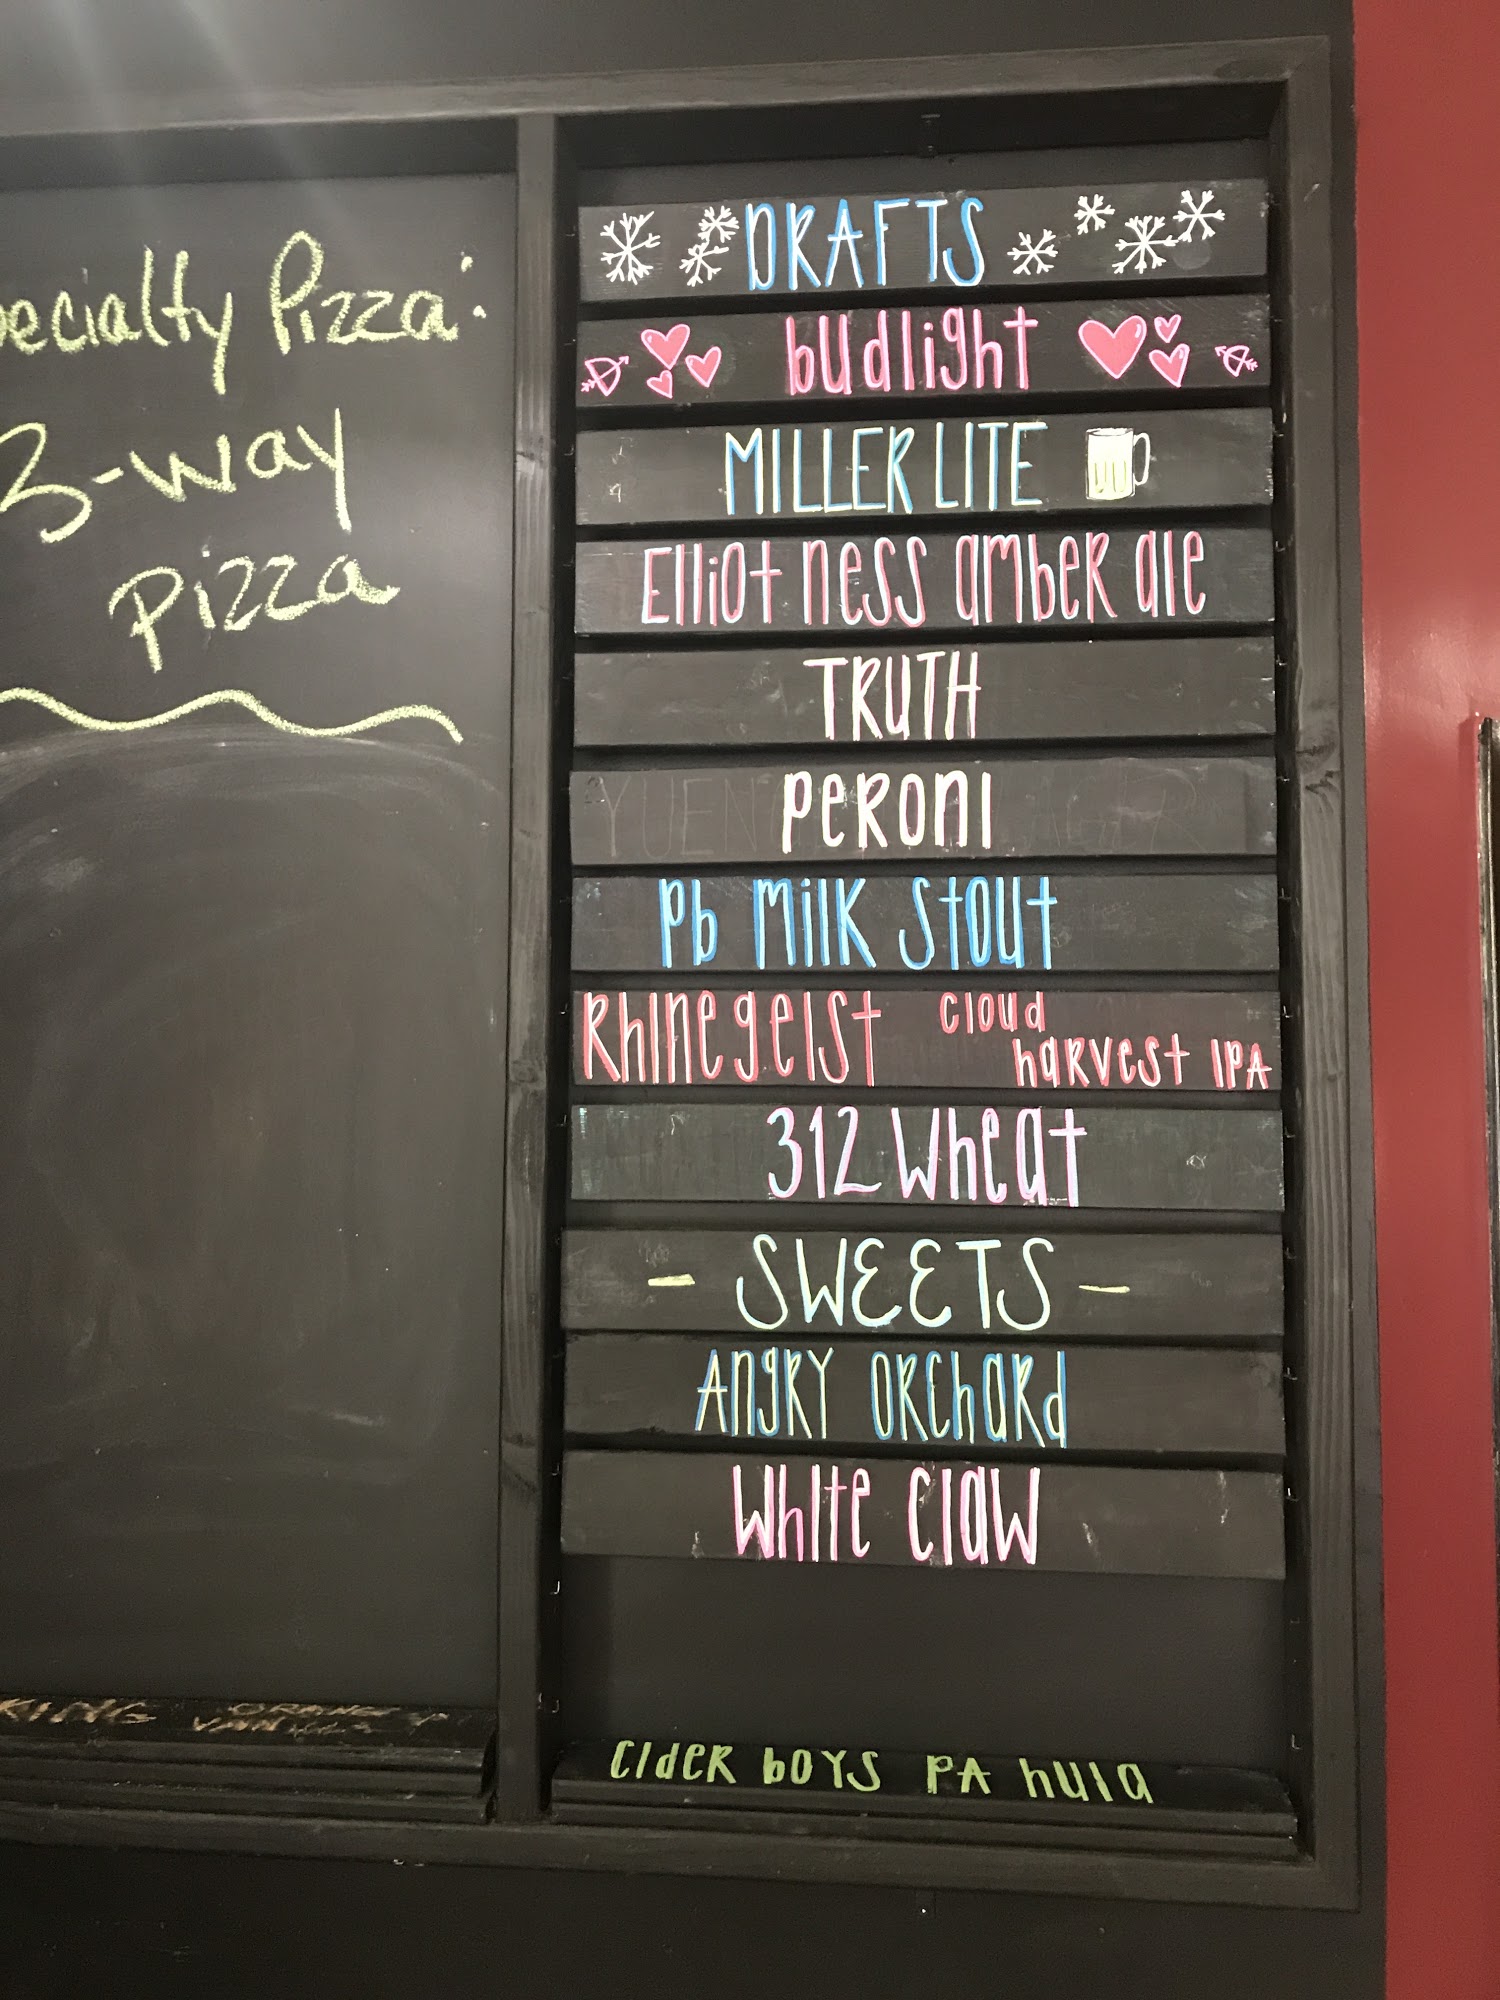 pecialty Pizza:
3-way
Pizza
KING
DRAFTS
budlight
MILLER LITE
Elliot ness amber ale
TRUTH
YUEN PERONI
Pb Milk Stout
Rhinegeist cloud
harvest IPA
312 Wheat
- SWEETS -
Angry Orchard
White Claw
Cider boys PA hula